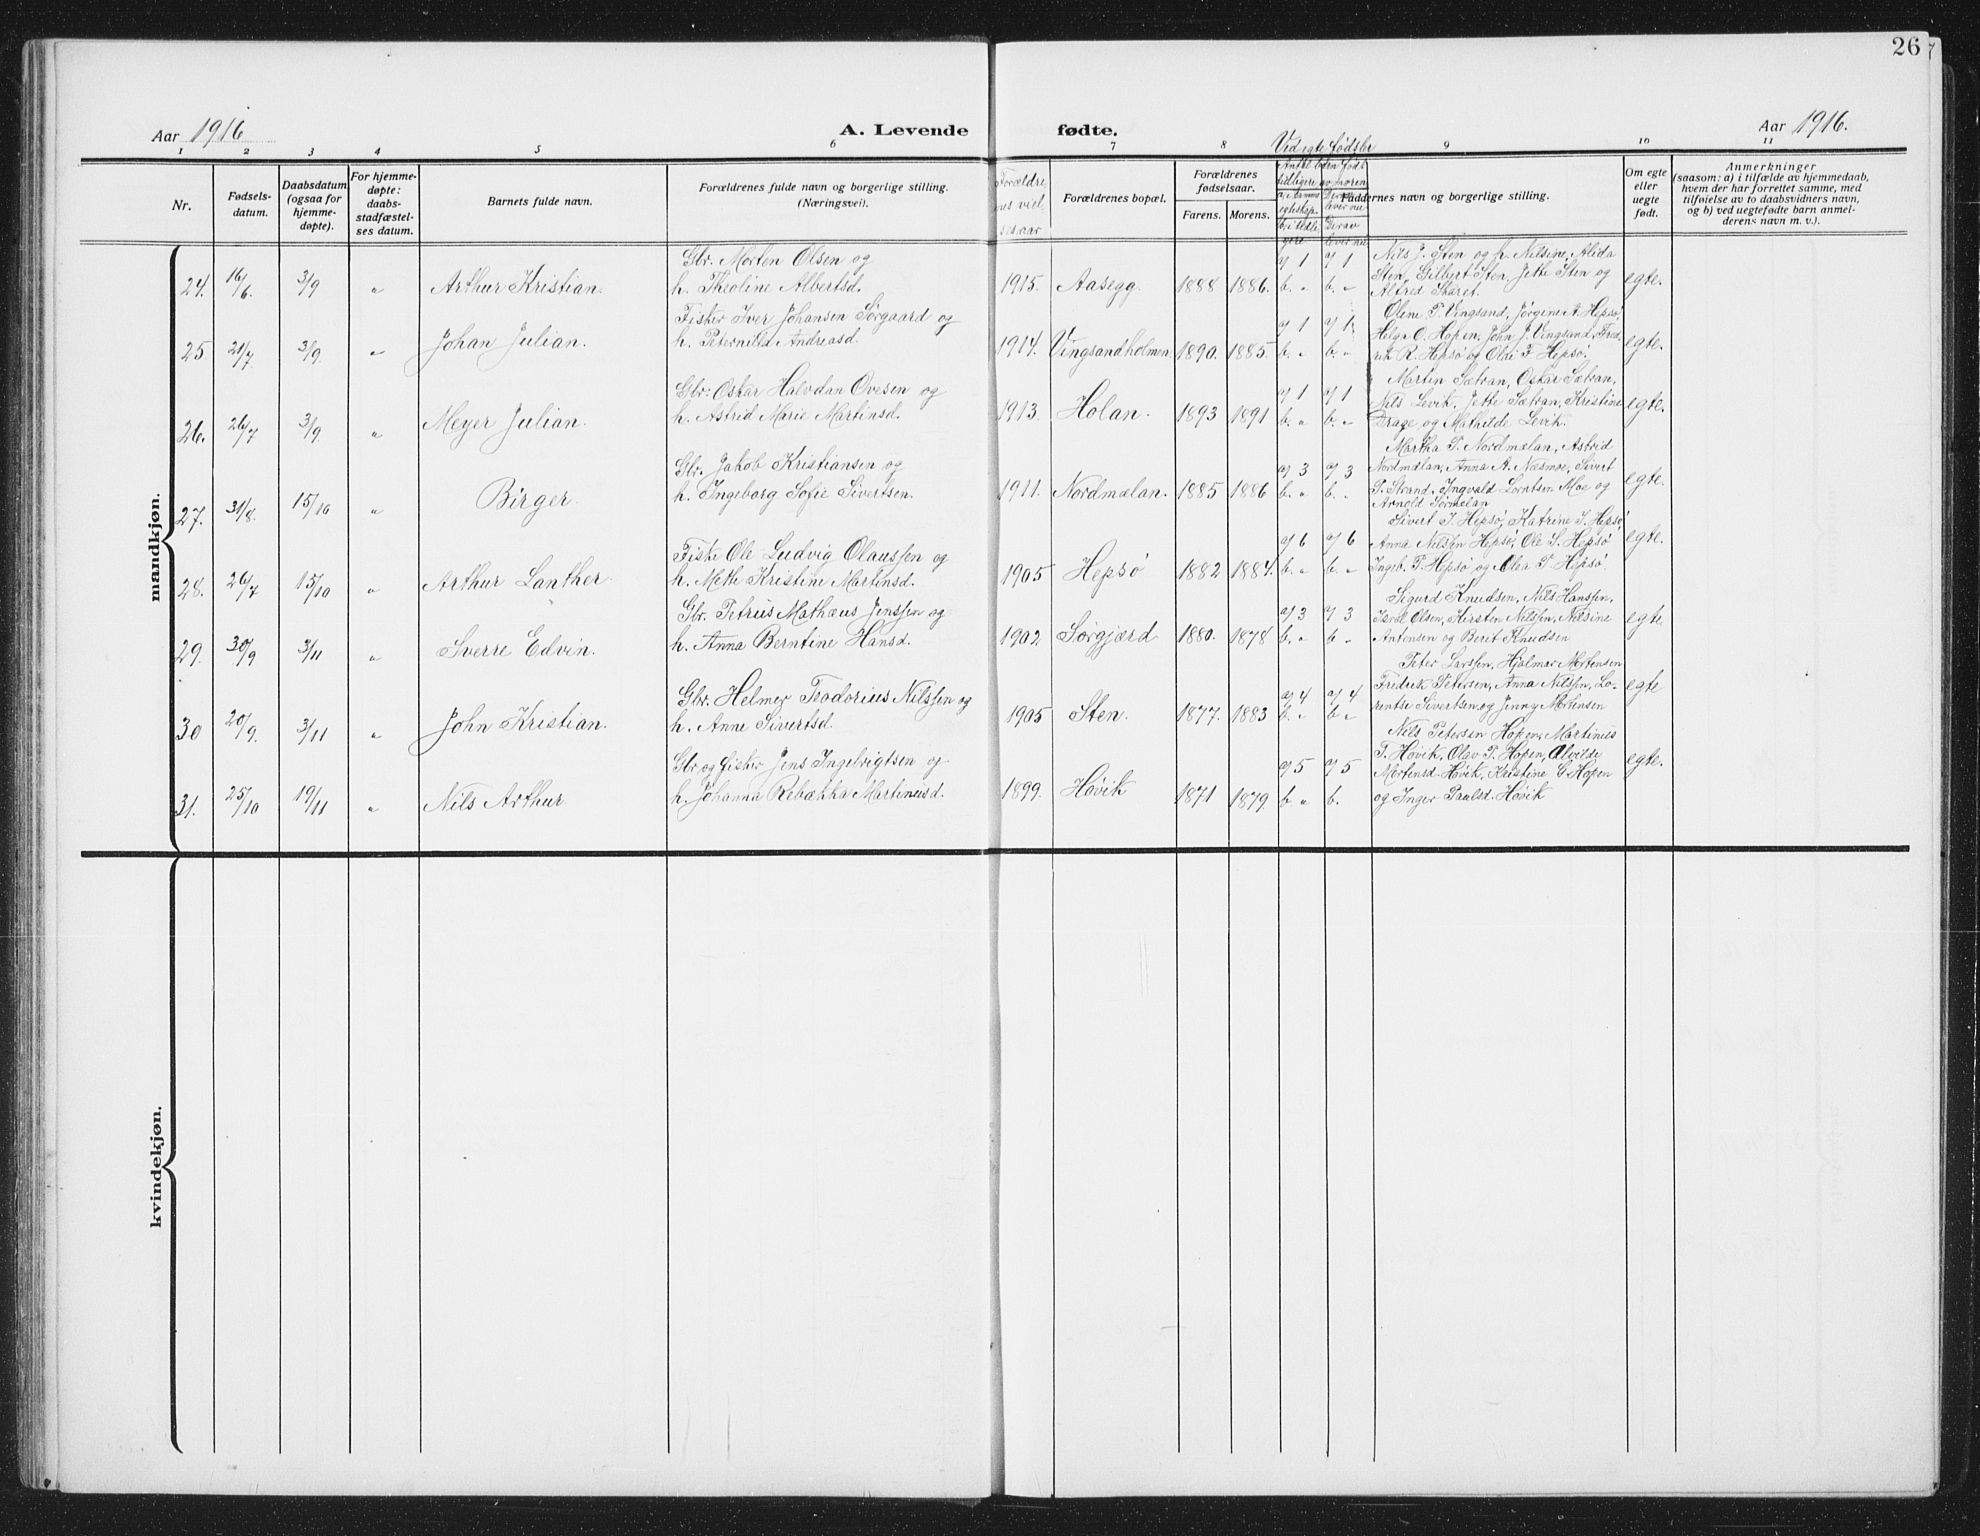 26
Aar 1916
A. Levende fødte.
Aar 1916.
Ved egte fødsler
1 2 3 4 5 6 7 8 9 10 11
Nr.
Fødsels-
datum.
Daabsdatum
(ogsaa for
hjemme-
døpte).
For hjemme-
døpte:
daabs-
stadfæstel-
ses datum.
Barnets fulde navn.
Forældrenes fulde navn og borgerlige stilling.
(Næringsvei).
Forældrenes bopæl.
Forældrenes
fødselsaar.
Farens. Morens.
Faddernes navn og borgerlige stilling.
Om egte
eller
uegte
født.
Anmerkninger
(saasom: a) i tilfælde av hjemmedaab,
hvem der har forrettet samme, med
tilføielse av to daabsvidners navn,
og b) ved uegtefødte barn anmel-
derens navn m. v.).
mandkjøn.
24. 16/6. 3/9 " Arthur Kristian.
Gbr. Morten Olsen og
h. Theoline Albertsd.
1915. Aasegg. 1888 1886. a/ 1 a/ 1
b. " b. "
Nils J. Sten og h. Nilsine, Alida
Sten, Gilbert Sten, Jette Sten og
Alfred Skaret.
egte.
25 21/7 3/9. " Johan Julian.
Fisker Iver Johansen Sørgaard og
h. Peternild Andreasd.
1914. Vingsandholmen 1890. 1885. a/ 1 a/ 1
b. " b. "
Oline P. Vingsand, Jørgine A. Hepsø,
Helga O. Hopen, John J. Vingsand, Fred-
rik R. Hepsø og Oldi F. Hepsø.
egte.
26. 26/7 3/9 " Meyer Julian.
Gbr: Oskar Halvdan Ovesen og
h. Astrid Marie Martinsd.
1913. Holan. 1893 1891 a/ 1 a/ 1
b. " b. "
Martin Sætran, Oskar Sætran,
Nils Levik, Jette Sætran, Kristine
Drage og Mathilde Levik.
egte.
27. 31/8. 15/10 " Birger.
Gbr. Jakob Kristiansen og
h. Ingeborg Sofie Sivertsen.
1911. Nordmælan. 1885 1886 a/ 3 a/ 3
b. " b. "
Martha P. Nordmælan, Astrid
Nordmælan, Anna A. Næsmoe, Sivert
P. Strand, Ingvald Lorntsen Moe og
Arnold Sørmelan
egte.
28. 26/7 15/10 " Arthur Lanther.
Fisk. Ole Ludvig Olaussen og
h. Meth Kristine Martinsd.
1905 Hepsø 1882 1884. a/ 6 a/ 6
b. " b. "
Sivert J. Hepsø, Katrine J. Hepsø
Anna Nilssen Hepsø, Ole S. Hepsø
Ingeb. P. Hepsø og Olea P. Hepsø
egte.
29. 30/9 3/11 " Sverre Edvin.
Gbr. Petrus Mathæus Jenssen og
h. Anna Berntine Hansd.
1902. Sørgjærd 1880. 1878 a/ 3 a/ 3
b. " b "
Sigurd Knudsen, Nils Hanssen,
Isral Olsen, Kirsten Nilssen, Nilsine
Antonsen og Berit Knudsen
egte
30 20/9. 3/11 " John Kristian.
Gbr. Helmer Teodorius Nilssen og
h. Anne Sivertsd.
1905 Sten. 1877. 1883 a/ 4 a/ 4
b. " b "
Peter Larssen, Hjalmar Mortensen
Fredrik Petersen, Anna Nilssen, Lo-
rentse Sivertsen og Jenny Mortensen
egte
31. 25/10 19/11 " Nils Arthur.
Gbr og fisker Jens Ingebrigtsen og
h. Johanna Rebækka Martinusd.
1899. Høvik 1871 1879. a/ 5 a/ 5
b " b.
Nils Petersen Hopen, Martinus
P. Høvik, Olav P. Hopen, Alvilde
Mortensd. Høvik, Kristine G. Hopen
og Inger Paulsd. Høvik
egte.
kvindekjøn.